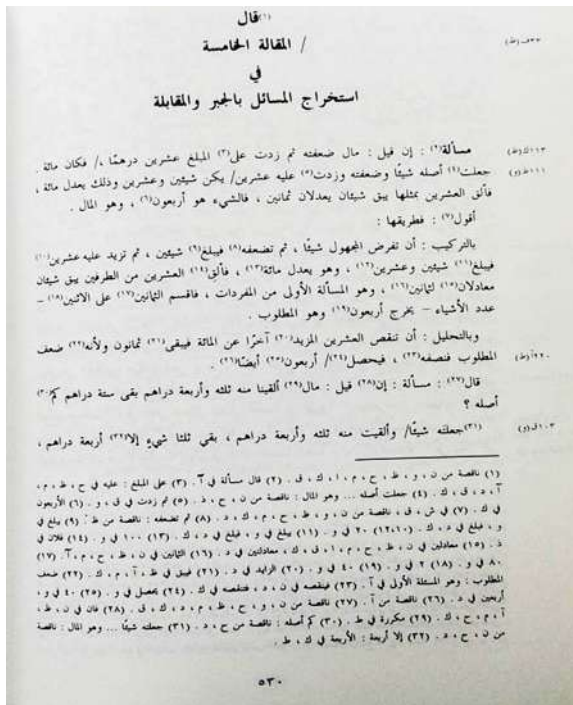 (١)قال
/ المقالة الخامسة
في
استخراج المسائل بالجبر والمقابلة
مسألة(٢) : إن قيل : مال ضعفته ثم زدت على(٣) المبلغ عشرين درهمًا ،/ فكان مائة .
جعلت(٤) أصله شيئًا وضعفته وزدت(٥) عليه عشرين/ يكن شيئين وعشرين وذلك يعدل مائة ،
فألق العشرين بمثلها يبق شيئان يعدلان ثمانين ، فالشيء هو أربعون(٦) ، وهو المال .
أقول(٧) : فطريقها :
بالتركيب : أن تفرض المجهول شيئًا ، ثم تضعفه(٨) فيبلغ(٩) شيئين ، ثم تزيد عليه عشرين(١٠)
فيبلغ(١١) شيئين وعشرين(١٢) ، وهو يعدل مائة(١٣) ، فألق(١٤) العشرين من الطرفين يبق شيئان
معادلان(١٥) لثمانين(١٦) ، وهو المسألة الأولى من المفردات ، فاقسم الثمانين(١٧) على الاثنين(١٨) –
عدد الأشياء – يخرج أربعون(١٩) وهو المطلوب .
وبالتحليل : أن تنقص العشرين المزيد(٢٠) آخرًا عن المائة فيبقى(٢١) ثمانون ولأنه(٢٢) ضعف
المطلوب فنصفه(٢٣) ، فيحصل(٢٤)/ أربعون(٢٥) أيضًا(٢٦) .
قال(٢٧) : مسألة : إن(٢٨) قيل : مال(٢٩) ألقينا منه ثلثه وأربعة دراهم بقى ستة دراهم كم(٣٠)
أصله ؟
(٣١)جعلته شيئًا/ وألقيت منه ثلثه وأربعة دراهم ، بقي ثلثا شيءٍ إلا(٣٢) أربعة دراهم ،
(١) ناقصة من ن ، و ، ظ ، ح ، م ، ا ، ك ، ق . (٢) قال مسألة في آ . (٣) على المبلغ : عليه في ح ، ظ ، م ،
آ ، د ، ق ، ك . (٤) جعلت أصله ... وهو المال : ناقصة من ن ، ح ، د . (٥) ثم زدت في ق ، و . (٦) الأربعون
في ك . (٧) في ش ، ق ، ناقصة من ن ، و ، ظ ، ح ، م ، ك ، د . (٨) ثم تضعفه : ناقصة من ظ . (٩) يبلغ في
و ، فبلغ في د ، ك . (١٠،١٢) ٢٠ في و . (١١) يبلغ في و ، فبلغ في د ، ك . (١٣) ١٠٠ في و . (١٤) فلان في
د . (١٥) معادلين في ن ، ظ ، ح ، م ، ا ، ق ، ك ، معادلتين في د . (١٦) الثمانين في ن ، ظ ، ح ، م ، آ . (١٧)
٨٠ في و . (١٨) ٢ في و . (١٩) ٤٠ في و . (٢٠) الزايد في د . (٢١) فيبق في ظ ، آ ، م ، ك . (٢٢) ضعف
المطلوب : وهو المسئلة الأولى في آ . (٢٣) فينقصه في ن ، د ، فتنقصه في ك . (٢٤) يحصل في و . (٢٥) ٤٠ في و ،
أربعين في د . (٢٦) ناقصة من آ . (٢٧) ناقصة من ن ، و ، ح ، ظ ، م ، د ، ك ، ق . (٢٨) فان في ن ، ظ ،
آ ، م ، ح ، ك . (٢٩) مكررة في ظ . (٣٠) كم أصله : ناقصة من ح ، د . (٣١) جعلته شيئًا ... وهو المال : ناقصة
من ن ، ح ، د . (٣٢) إلا أربعة : الأربعة في ك ، ظ .
٥٣٠